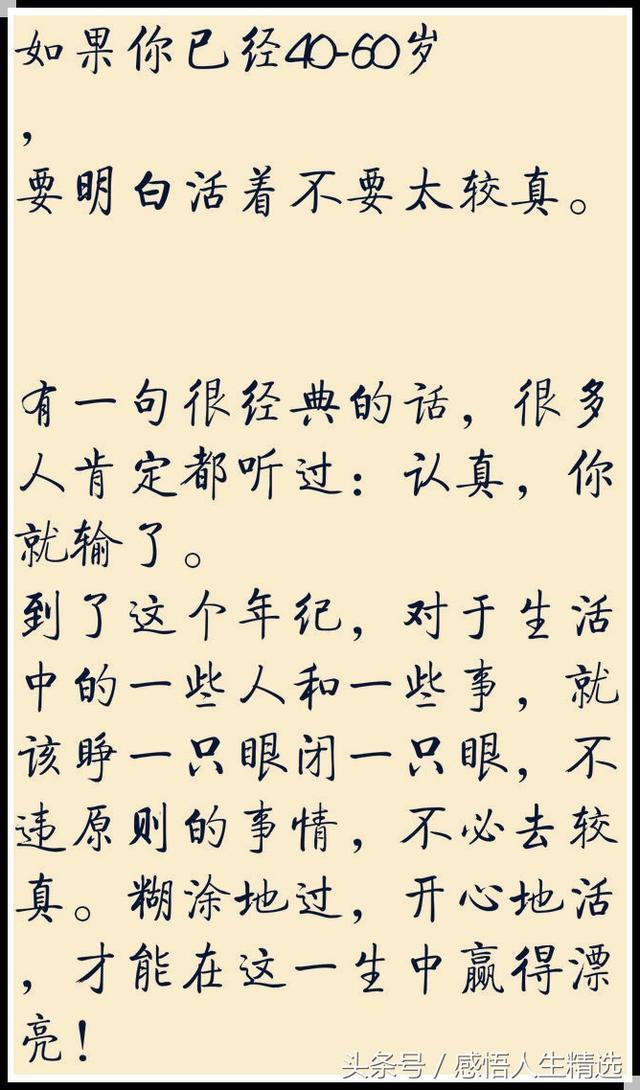 如果你已经40-60岁
，
要明白活着不要太较真。
有一句很经典的话，很多
人肯定都听过：认真，你
就输了。
到了这个年纪，对于生活
中的一些人和一些事，就
该睁一只眼闭一只眼，不
违原则的事情，不必去较
真。糊涂地过，开心地活
，才能在这一生中赢得漂
亮！
头条号／感悟人生精选